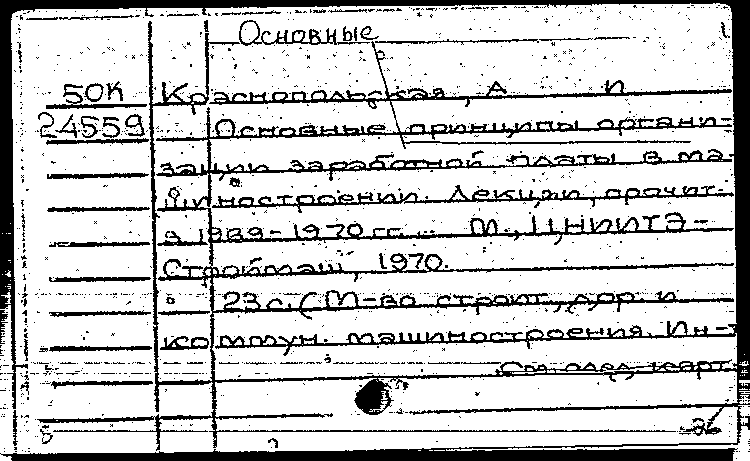 Основные
50К Краснопольская, А П
24559 Основные принципы органи-
зации заработной платы в ма-
шиностроении. Лекции, прочит.
в 1969-1970 гг. М., ЦНИИТЭ-
Строймаш, 1970.
23 с. (М-во строит., дор. и
коммун. машиностроения. Ин-т
См. след. карт.
36